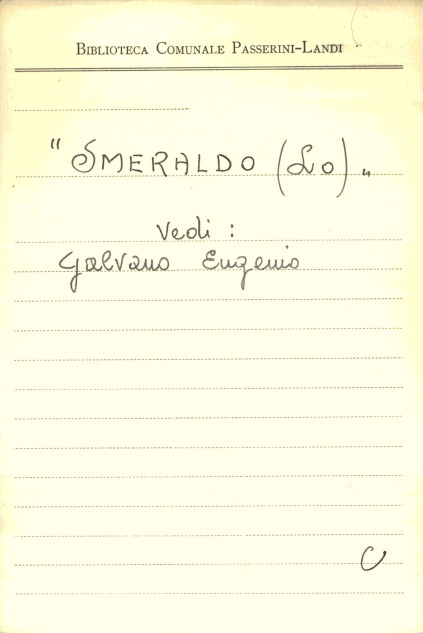 BIBLIOTECA COMUNALE PASSERINI-LANDI
"SMERALDO (Lo)"
Vedi :
Galvano Eugenio
C